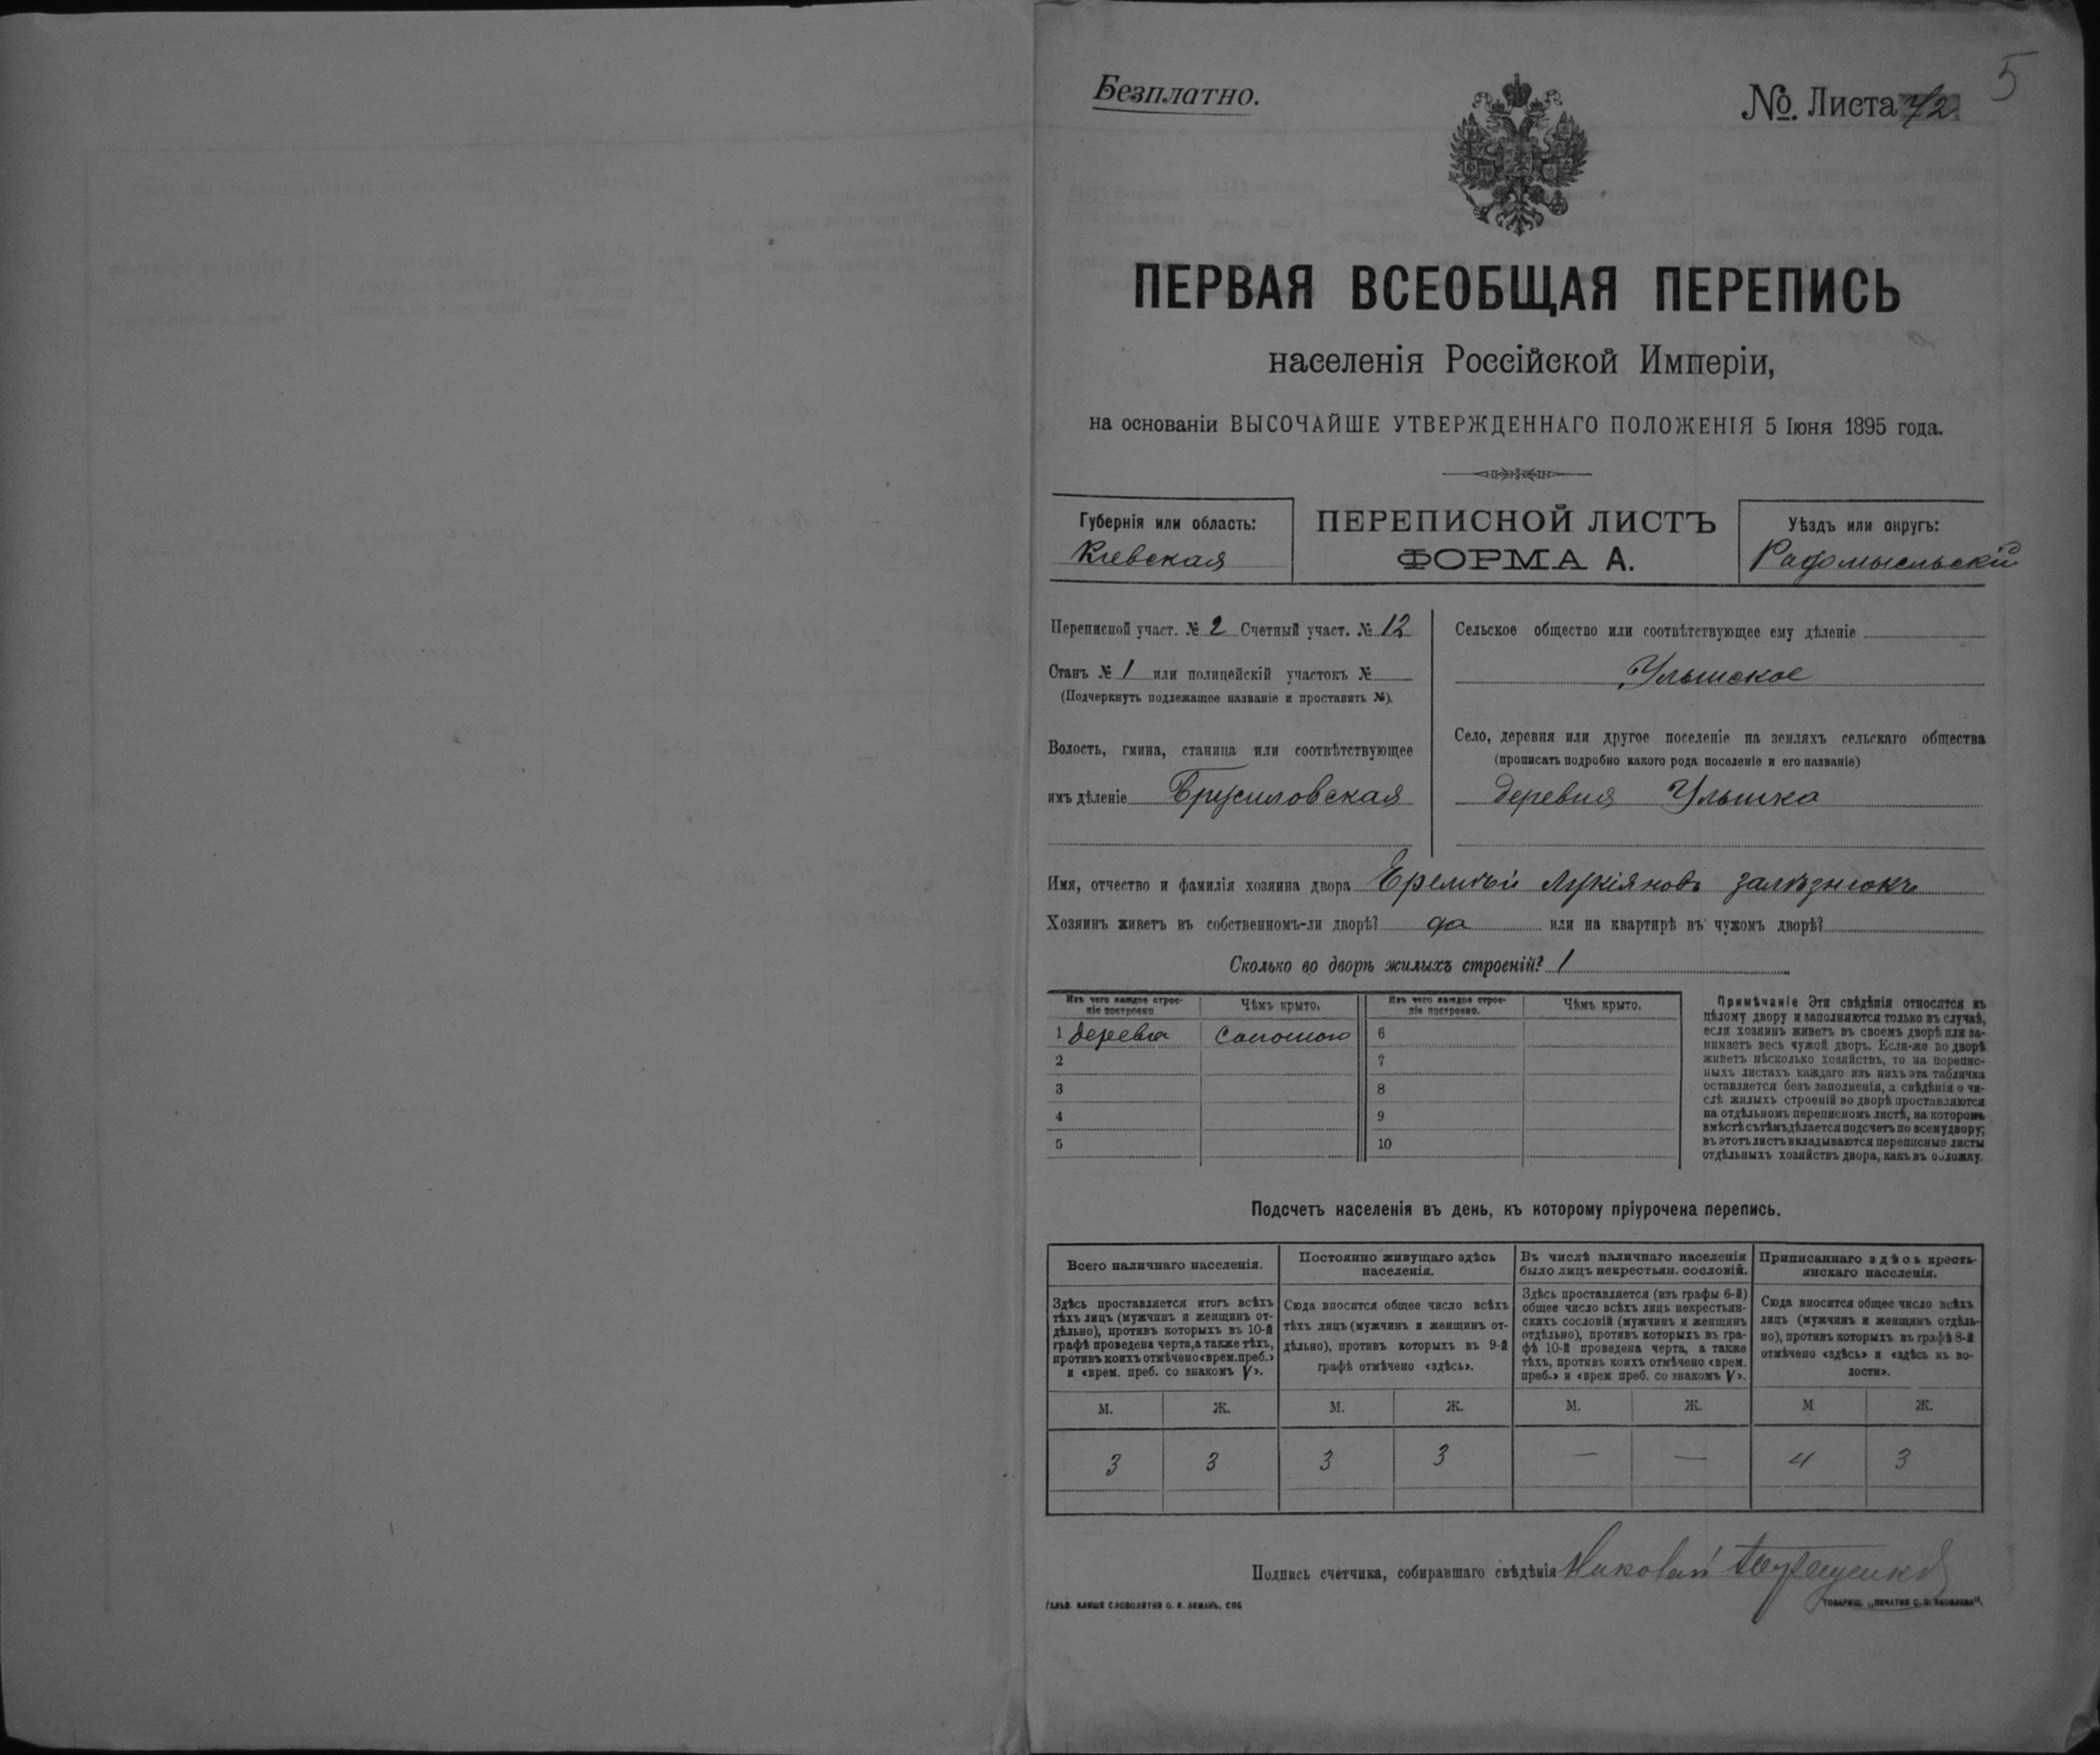 5
Безплатно.
№. Листа 72
ПЕРВАЯ ВСЕОБЩАЯ ПЕРЕПИСЬ
населенія Россійской Имперіи,
на основаніи ВЫСОЧАЙШЕ УТВЕРЖДЕННАГО ПОЛОЖЕНІЯ 5 Іюня 1895 года.
Губернія или область:
Кіевская
ПЕРЕПИСНОЙ ЛИСТЪ
ФОРМА А.
Уѣздъ или округъ:
Радомысльскій
Переписной участ. № 2 Счетный участ. № 12
Станъ № 1 или полицейскій участокъ №
(Подчеркнуть подлежащее названіе и проставить №).
Волость, гмина, станица или соотвѣтствующее
имъ дѣленіе Брусиловская
Сельское общество или соотвѣтствующее ему дѣленіе
Ульшское
Село, деревня или другое поселеніе на земляхъ сельскаго общества
(прописать подробно какого рода поселеніе и его названіе)
деревня Ульшка
Имя, отчество и фамилія хозяина двора Еремѣй Лукіяновъ Залѣзнюкъ
Хозяинъ живетъ въ собственномъ-ли дворѣ? да или на квартирѣ въ чужомъ дворѣ?
Сколько во дворѣ жилыхъ строеній? 1
Изъ чего каждое строе-
ніе построено
Чѣмъ крыто.
Изъ чего каждое строе-
ніе построено.
Чѣмъ крыто.
1 дерева соломою 6
2 7
3 8
4 9
5 10
Примѣчаніе Эти свѣдѣнія относятся къ
цѣлому двору и заполняются только въ случаѣ,
если хозяинъ живетъ въ своемъ дворѣ или за-
нимаетъ весь чужой дворъ. Если-же во дворѣ
живетъ нѣсколько хозяйствъ, то на перепис-
ныхъ листахъ каждаго изъ нихъ эта табличка
оставляется безъ заполненія, а свѣдѣнія о чи-
слѣ жилыхъ строеній во дворѣ проставляются
на отдѣльномъ переписномъ листѣ, на которомъ
вмѣстѣ съ тѣмъ дѣлается подсчетъ по всему двору;
въ этотъ листъ вкладываются переписные листы
отдѣльныхъ хозяйствъ двора, какъ въ обложку.
Подсчетъ населенія въ день, къ которому пріурочена перепись.
Всего наличнаго населенія.
Здѣсь проставляется итогъ всѣхъ
тѣхъ лицъ (мужчинъ и женщинъ от-
дѣльно), противъ которыхъ въ 10-й
графѣ проведена черта, а также тѣхъ,
противъ коихъ отмѣчено «врем. преб.»
и «врем. преб. со знакомъ V».
Постоянно живущаго здѣсь
населенія.
Сюда вносится общее число всѣхъ
тѣхъ лицъ (мужчинъ и женщинъ от-
дѣльно), противъ которыхъ въ 9-й
графѣ отмѣчено «здѣсь».
Въ числѣ наличнаго населенія
было лицъ некрестьян. сословій.
Здѣсь проставляется (изъ графы 6-й)
общее число всѣхъ лицъ некрестьян-
скихъ сословій (мужчинъ и женщинъ
отдѣльно), противъ которыхъ въ гра-
фѣ 10-й проведена черта, а также
тѣхъ, противъ коихъ отмѣчено «врем.
преб.» и «врем преб. со знакомъ V».
Приписаннаго здѣсь кресть-
янскаго населенія.
Сюда вносится общее число всѣхъ
лицъ (мужчинъ и женщинъ отдѣль-
но), противъ которыхъ въ графѣ 8-й
отмѣчено «здѣсь» и «здѣсь къ во-
лости».
М. Ж. М. Ж. М. Ж. М Ж.
3 3 3 3 — — 4 3
Подпись счетчика, собиравшаго свѣдѣнія Николай
ГАЛЬВ. КЛИШЕ СЛОВОЛИТНИ О. И. ЛЕМАНЪ, СПБ
ТОВАРИЩ. „ПЕЧАТНЯ С. П. ЯКОВЛЕВА".